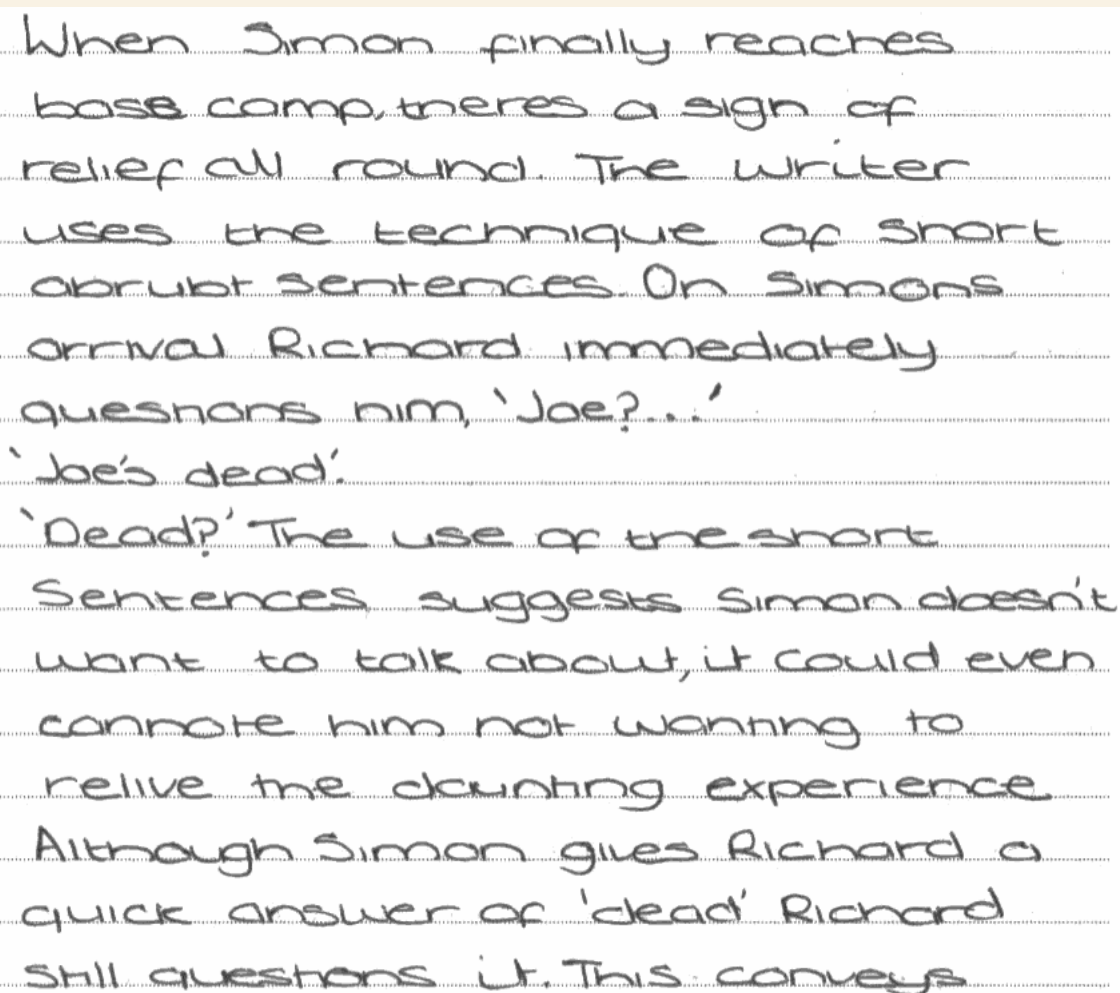 When Simon finally reaches
base camp, theres a sign of
relief all round. The writer
uses the technique of short
abrubt sentences. On Simons
arrival Richard immediately
questions him, 'Joe?...'
'Joe's dead'.
'Dead?' The use of the short
Sentences suggests Simon doesn't
want to talk about, it could even
connote him not wanting to
relive the daunting experience
Although Simon gives Richard a
quick answer of 'dead' Richard
still questions it. This conveys